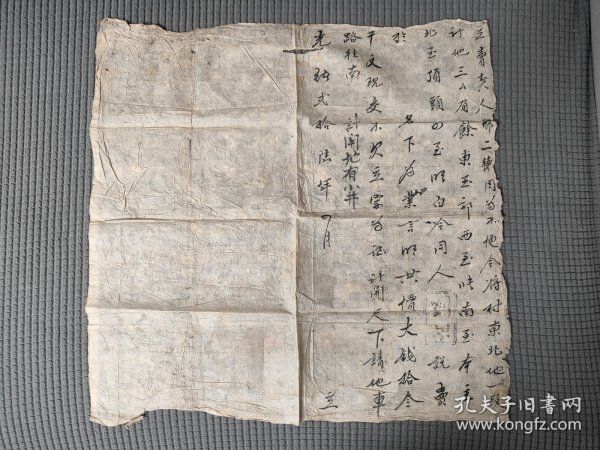 立賣契人 二 因為不便今將村東北地一段
計地三 有餘東至 西至 南至本主
北至頂頭四至明白今同人 說賣
於
名下為業言明共價大錢拾叁
千文現交不欠立字為証計開 下諸地車
路往南 計開地有 井
光緒弍拾陸年 月 立
孔夫子旧书网
www.kongfz.com